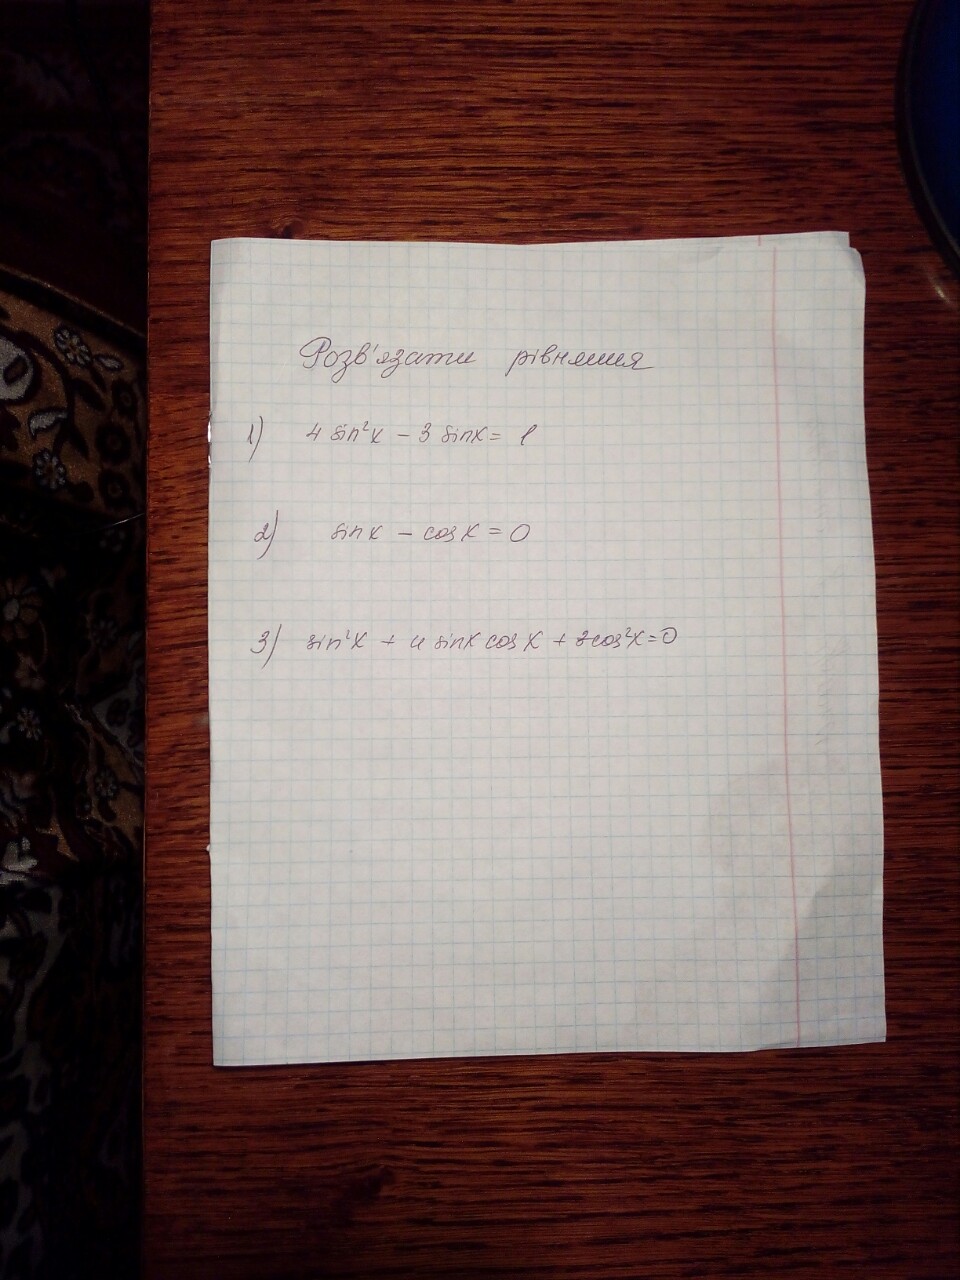 Розв'язати рівняння
1) 4 sin²x - 3 sinx = 1
2) sinx - cosx = 0
3) sin²x + 4 sinx cosx + 3cos²x = 0